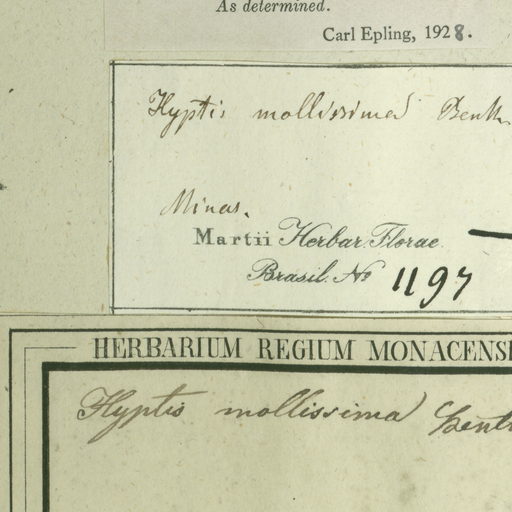 As determined.
Carl Epling, 1928.
Hyptis mollissima Benth
Minas.
Martii Herbar. Florae
Brasil. No 1197
HERBARIUM REGIUM MONACENS
Hyptis mollissima Benth